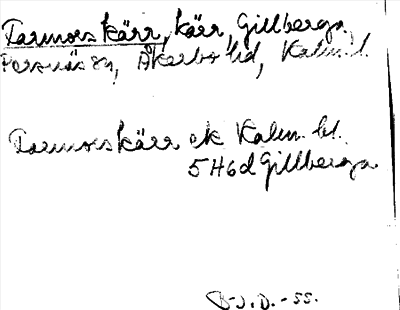 Tarmorskärr, kärr, Gillberga
Persnäs sn, Åkerbo hd, Kalm. l.
Tarmorskärr ek Kalm. bl.
5 H6d Gillberga
B-J.D.-55.